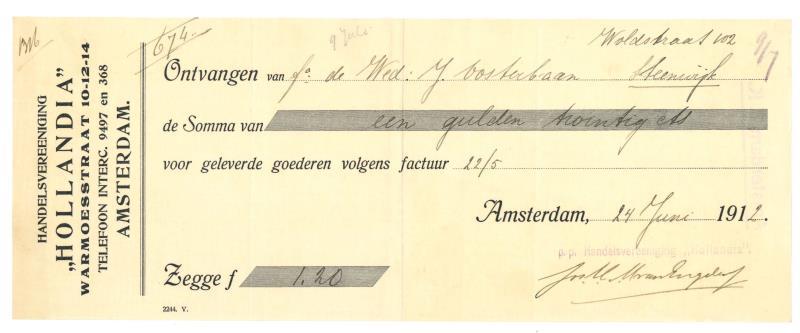 1316
HANDELSVEREENIGING
„HOLLANDIA”
WARMOESSTRAAT 10-12-14
TELEFOON INTERC. 9497 en 368
AMSTERDAM.
674.-
9 Juli.
Woldstraat 102
9/7
Ontvangen van fa de Wed: J. Oosterbaan Steenwijk
de Somma van een gulden twintig cts
voor geleverde goederen volgens factuur 22/5
Amsterdam, 24 Juni 1912.
p.p. Handelsvereeniging „Hollandia”.
Zegge f 1.20
2244. V.